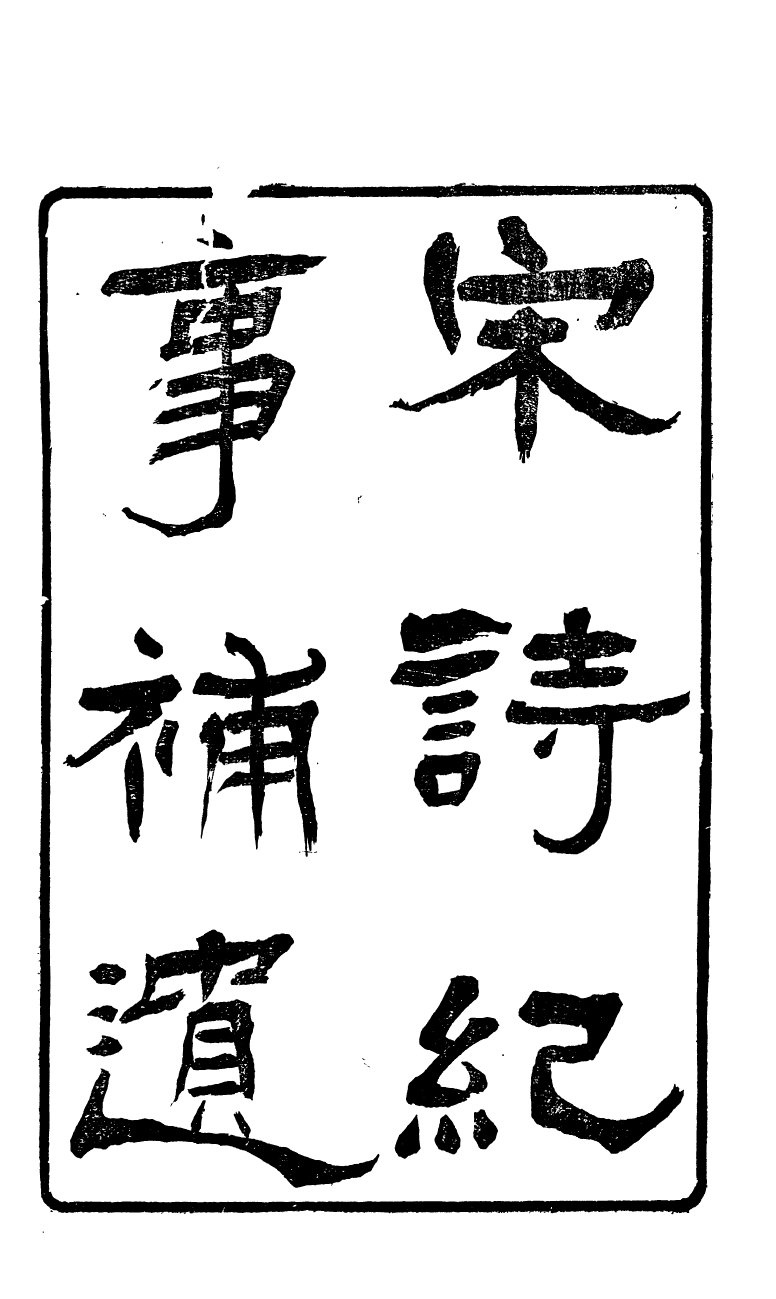 宋詩紀
事補遺